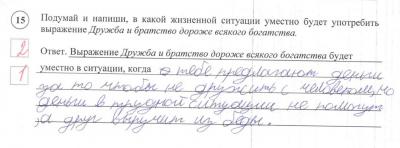 15 Подумай и напиши, в какой жизненной ситуации уместно будет употребить
выражение Дружба и братство дороже всякого богатства.
2 Ответ. Выражение Дружба и братство дороже всякого богатства будет
1 уместно в ситуации, когда тебе предлагают деньги
за то чтобы не дружить с человеком, но
деньги в трудной ситуации не помогут
, а друг выручит из беды.